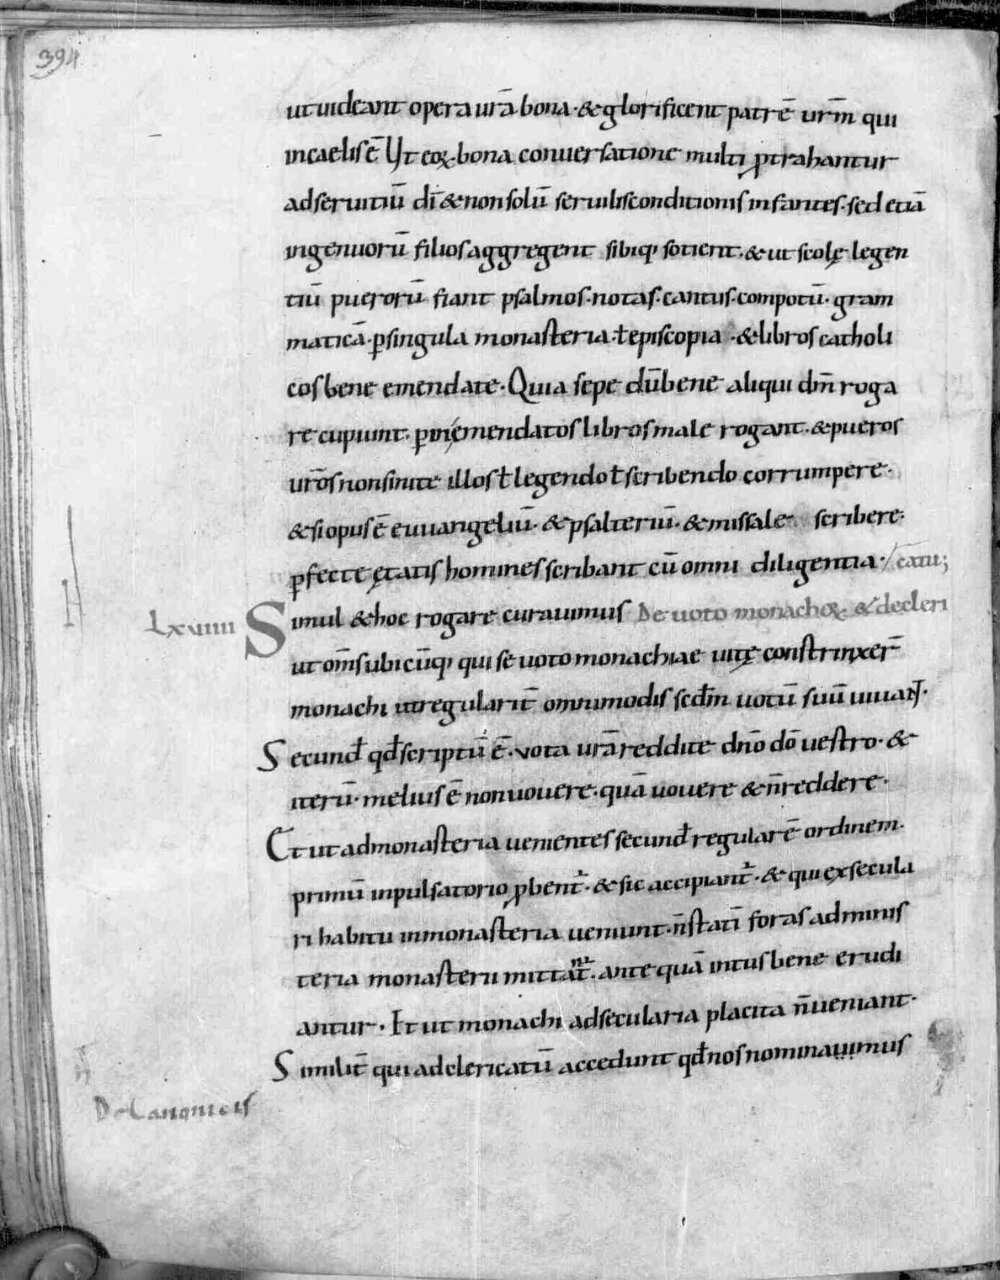 394
ut uideant opera urā bona · & glorificent patrē urm̄ qui
in caelis ē Ut eoꝝ bona conuersatione multi ꝓtrahantur
ad seruitiū dī & non solū seruilis conditionis infantes · sed etiā
ingenuorū filios aggregent sibiq; sotient · & ut scolę legen
tiū puerorū fiant psalmos · notas · cantus · compotū · gram
maticā · ꝑ singula monasteria · ł episcopia · & libros catholi
cos bene emendate · Quia sepe dū bene aliqui dm̄ roga
re cupiunt · ꝑ inemendatos libros male rogant · & pueros
urōs non sinite illos ł legendo ł scribendo corrumpere ·
& si opus ē euuangeliū · & psalteriū · & missale scribere ·
ꝑfectę ętatis homines scribant cū omni diligentia · / catu;
Lxviiii Simul & hoc rogare curauimus De uoto monachoꝝ & de cleri
ut om̄s ubicūq; qui se uoto monachiae uitę constrinxer̄
monachi ut regularit̄ omnimodis secdm̄ uotū suū uiuant ·
Secund̄ qd̄ scriptū ē · vota urā reddite dnō dō uestro · &
iterū · melius ē non uouere · quā uouere & n̄ reddere ·
Et ut ad monasteria uenientes secund̄ regularē ordinem ·
primū in pulsatorio ꝓbent̄ · & sic accipiant̄ · & qui ex secula
ri habitu in monasteria ueniunt · n̄ statī foras ad minis
teria monasterii mittant̄ · ante quā intus bene erudi
antur · Et ut monachi ad secularia placita n̄ ueniant ·
Similit̄ qui ad clericatū accedunt qd̄ nos nominauimus
De Canonicis